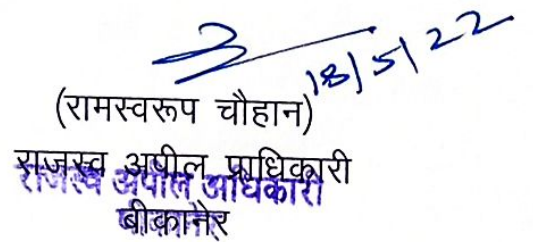 18/5/22
(रामस्वरूप चौहान)
राजस्व अपील प्राधिकारी
राजस्व अपील अधिकारी
बीकानेर